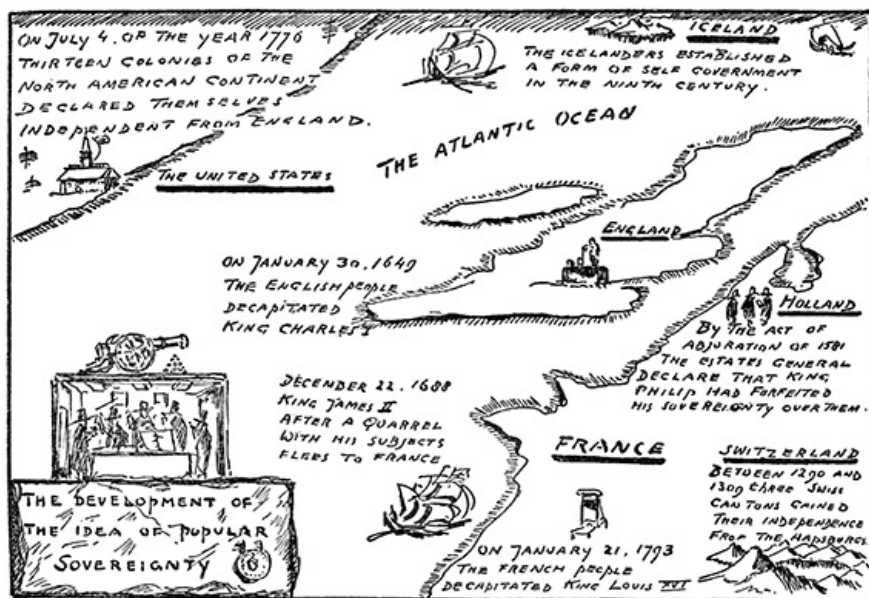 ON JULY 4. OF THE YEAR 1776
THIRTEEN COLONIES OF THE
NORTH AMERICAN CONTINENT
DECLARED THEMSELVES
INDEPENDENT FROM ENGLAND.
THE UNITED STATES
ICELAND
THE ICELANDERS ESTABLISHED
A FORM OF SELF GOVERNMENT
IN THE NINTH CENTURY.
THE ATLANTIC OCEAN
ENGLAND
ON JANUARY 30, 1649
THE ENGLISH PEOPLE
DECAPITATED
KING CHARLES I
HOLLAND
BY THE ACT OF
ADJURATION OF 1581
THE ESTATES GENERAL
DECLARE THAT KING
PHILIP HAD FORFEITED
HIS SOVEREIGNTY OVER THEM.
DECEMBER 22, 1688
KING JAMES II
AFTER A QUARREL
WITH HIS SUBJECTS
FLEES TO FRANCE
FRANCE
ON JANUARY 21, 1793
THE FRENCH PEOPLE
DECAPITATED KING LOUIS XVI
SWITZERLAND
BETWEEN 1290 AND
1309 three SWISS
CANTONS GAINED
THEIR INDEPENDENCE
FROP THE HAPSBURGS
THE DEVELOPMENT OF
THE IDEA OF POPULAR
SOVEREIGNTY